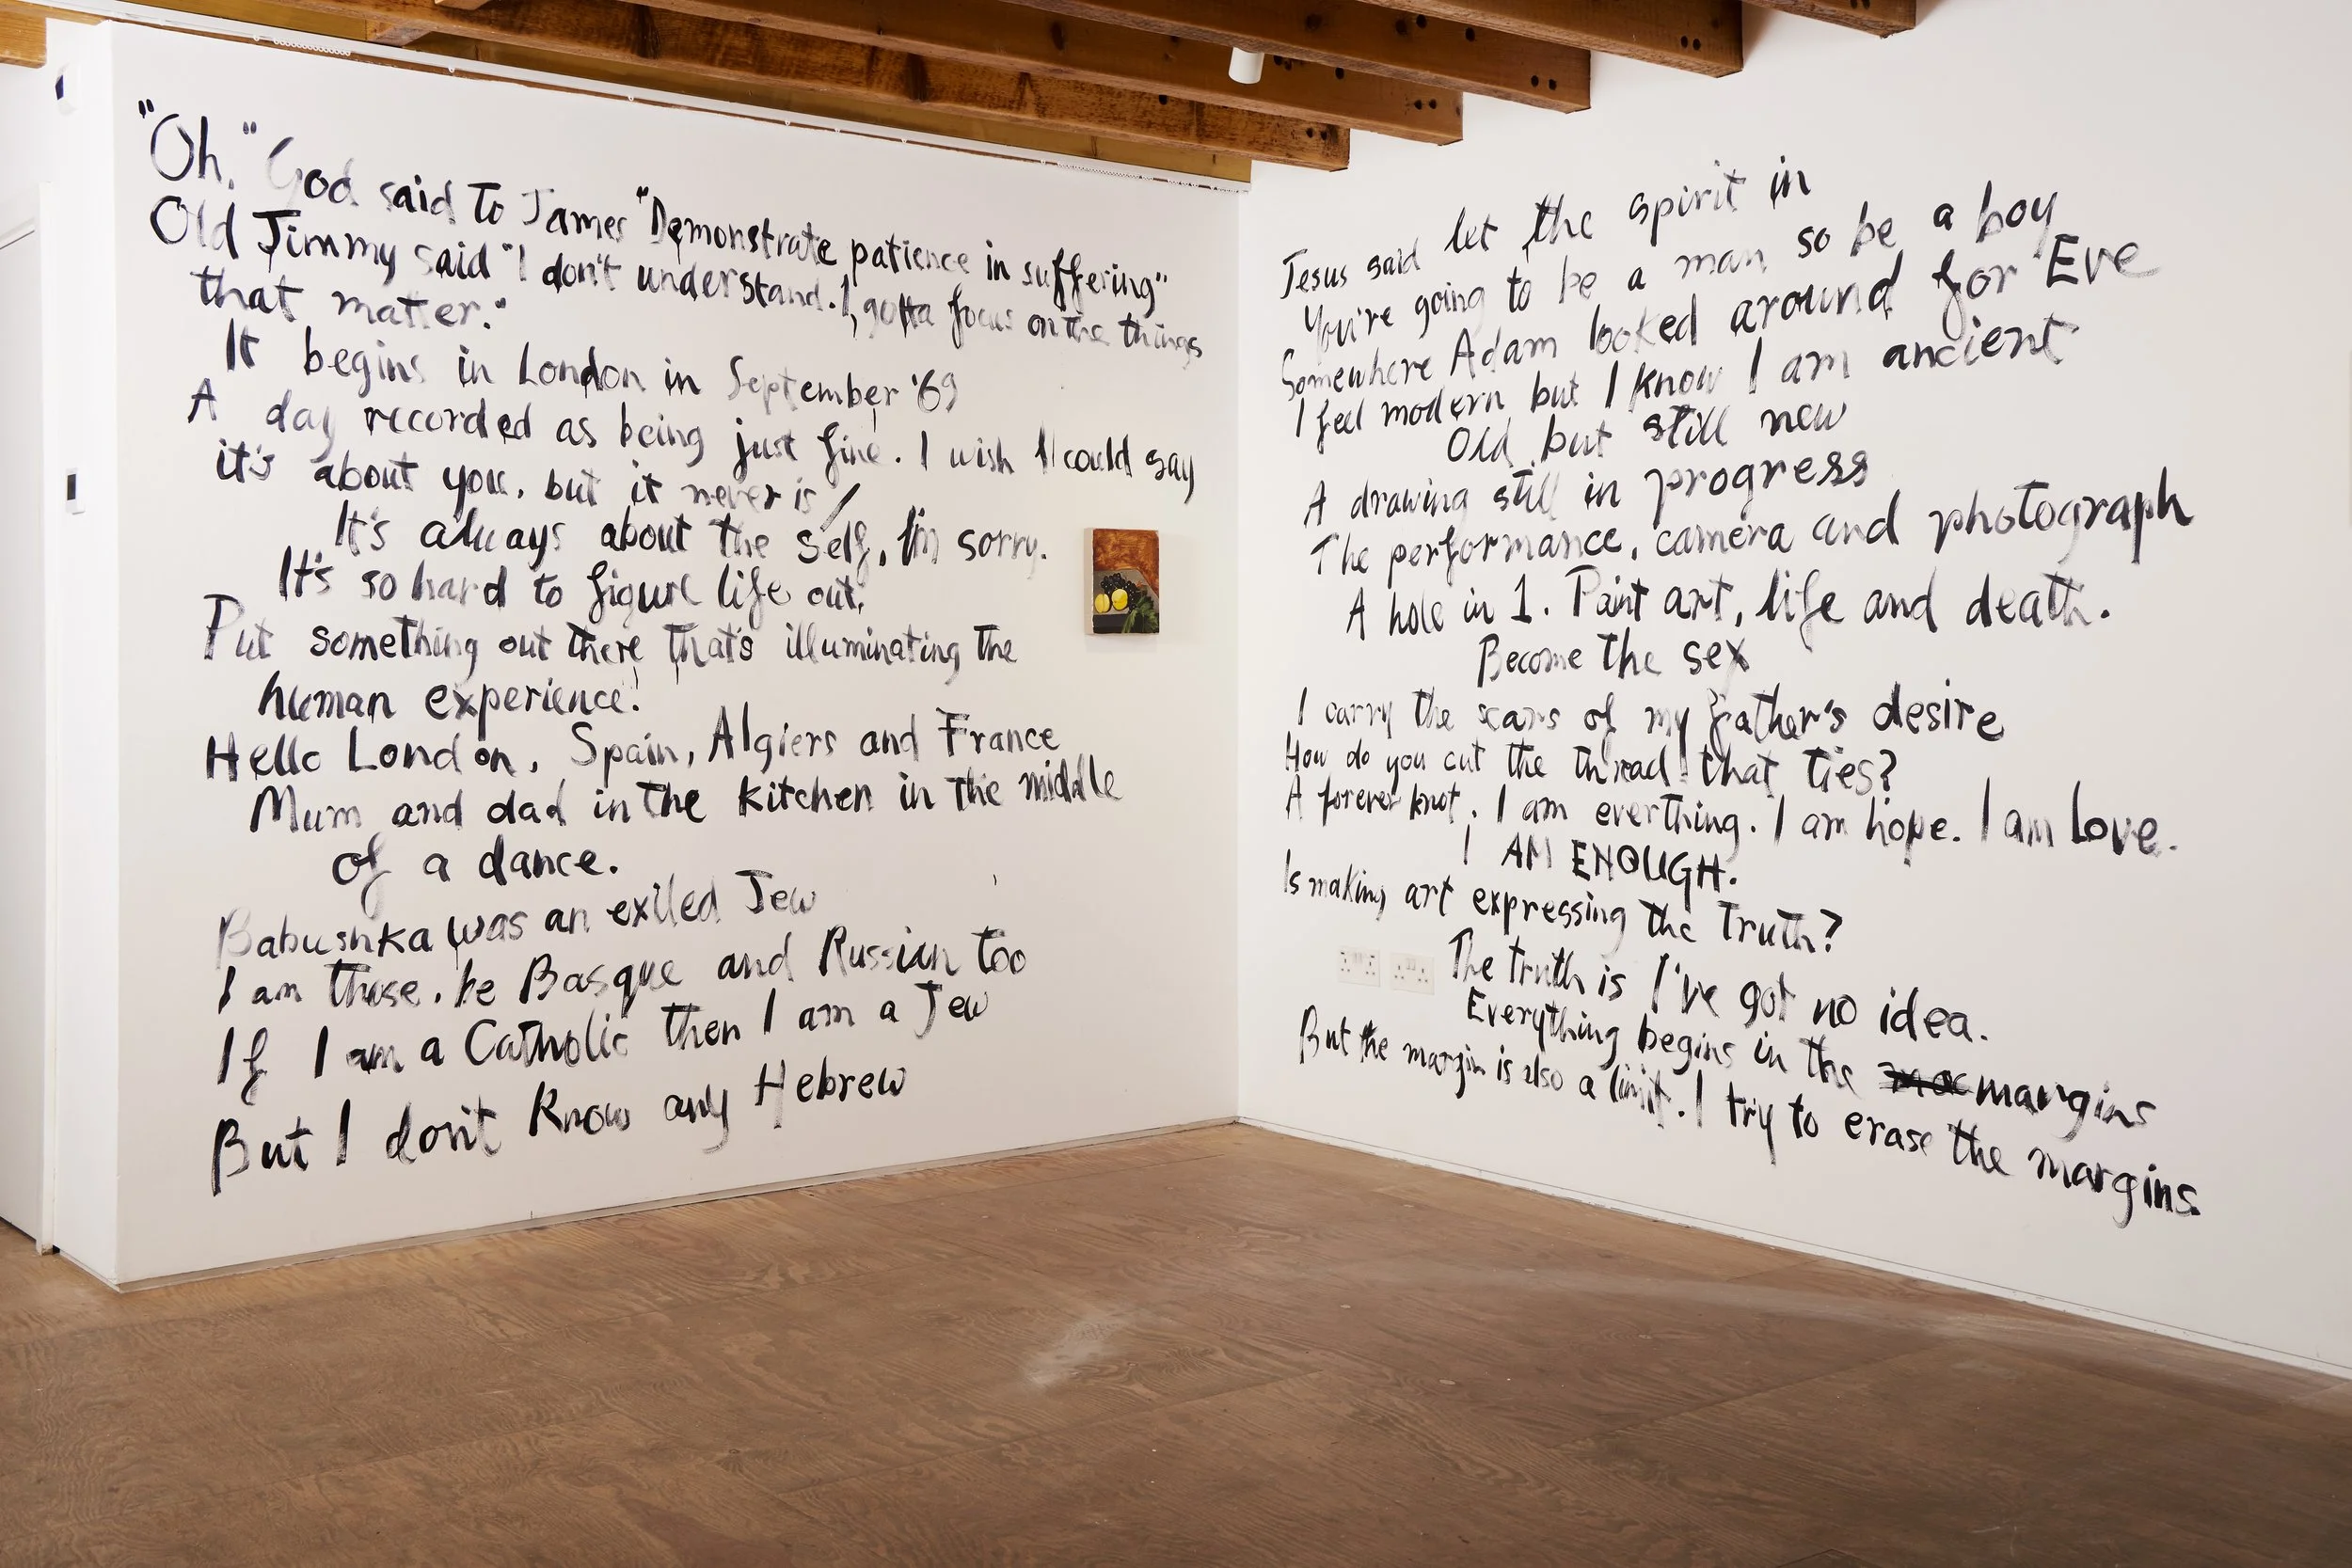 "Oh," God said To James "Demonstrate patience in suffering"
Old Jimmy said "I don't understand. I, gotta focus on the things
that matter."
It begins in London in September '69
A day recorded as being just fine. I wish I could say
it's about you, but it never is
It's always about the self, I'm sorry.
It's so hard to figure life out,
Put something out there that's illuminating the
human experience!
Hello London, Spain, Algiers and France
Mum and dad in the kitchen in the middle
of a dance.
Babushka was an exiled Jew
I am those. be Basque and Russian too
If I am a Catholic then I am a Jew
But I don't know any Hebrew
Jesus said let the spirit in
You're going to be a man so be a boy
Somewhere Adam looked around for Eve
I feel modern but I know I am ancient
Old but still new
A drawing still in progress
The performance, camera and photograph
A hole in 1. Paint art, life and death.
Become the sex
I carry the scars of my father's desire
How do you cut the thread that ties?
A forever knot. I am everthing. I am hope. I am love.
I AM ENOUGH.
Is making art expressing the truth?
The truth is I've got no idea.
Everything begins in the margins
But the margin is also a limit. I try to erase the margins.